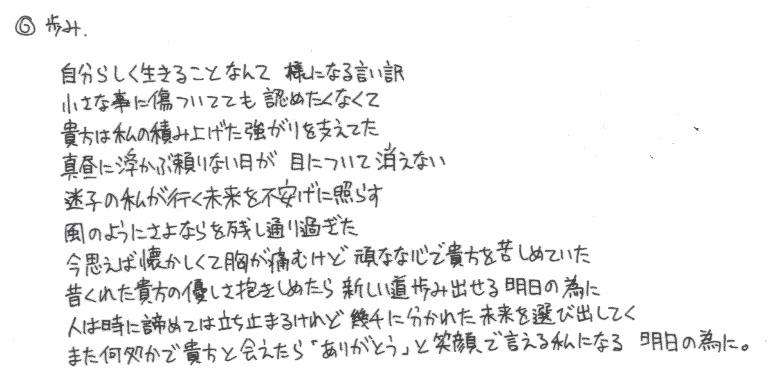 ◎ 歩み.
自分らしく生きることなんて 様になる言い訳
小さな事に傷ついてても 認めたくなくて
貴方は私の積み上げた強がりを支えてた
真昼に浮かぶ頼りない月が 目について消えない
迷子の私が行く未来を不安げに照らす
風のようにさよならを残し通り過ぎた
今思えば懐かしくて胸が痛むけど 頑なな心で貴方を苦しめていた
昔くれた貴方の優しさ抱きしめたら 新しい道歩み出せる 明日の為に
人は時に諦めては立ち止まるけれど 幾千に分かれた未来を選び出してく
また何処かで貴方と会えたら「ありがとう」と笑顔で言える私になる 明日の為に。